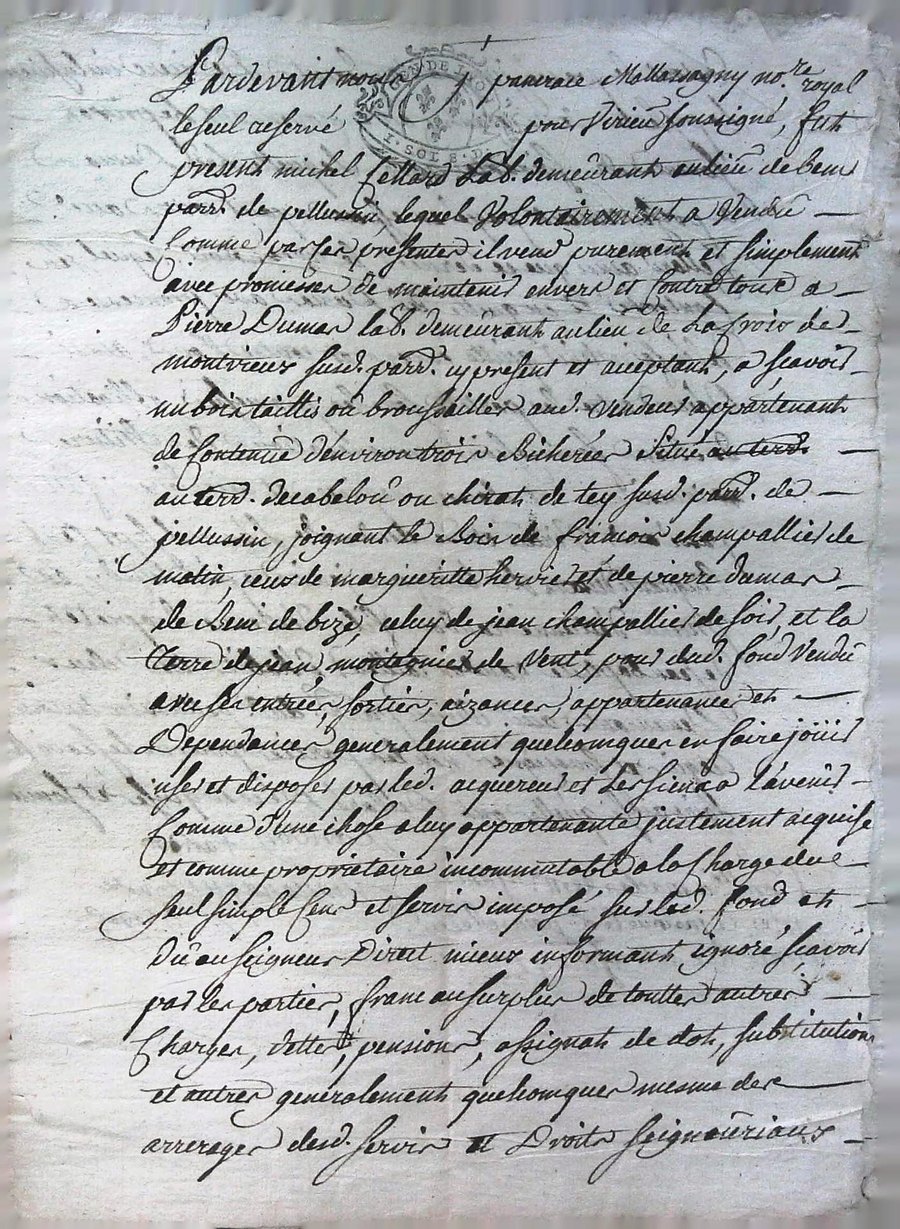 Pardevant nous pancrace Mallassagny no.re royal
le seul reservé pour Virieu soussigné, fut
present michel Cellard Lab. demeurant au lieu de Bem
parr. de pellussin lequel Volontairement a Vendu —
Comme par ces presentes il vend purement et simplement
avec promesses de maintenir envers et Contre tous a —
Pierre Dumas lab. demeurant au lieu de La Croix de —
montvieux susd. parr. cy present et aceptant, a scavoir —
un bois taillis ou broussailles aud. Vendeur appartenant
de Contenue d'environ trois Bicherées Situé au terr. —
au terr. de cabelou ou chirat de tey susd. parr. de —
pellussin, joignant le Bois de francois champallier de
matin, ceux de margueritte hervier et de pierre dumas —
de Bem de bize, celuy de jean champallier de soir, et la
Terre de jean montagnier de Vent, pour dud. fond Vendu
avec ses entrées, sorties, aizances, appartenances et —
Dependances generalement quelcomques en faire joüir
user et disposer par led. acquereur et Les siens a l'avenir —
Comme d'une chose a luy appartenante justement acquise
et comme proprietaire incommutable a la Charge du —
seul simple Cens et servis imposé sur led. fond et —
dû au seigneur Direct mieux informant ignoré scavoir
par les parties, franc au surplus de touttes autres —
Charges, dettes, pensions, assignat de dot, substitutions
et autres generalement quelcomques mesme des —
arrerages desd. servis et Droits seigneuriaux —